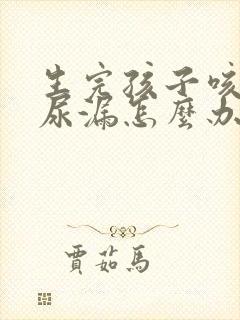 生完孩子咳
尿漏怎麼办
賈茹馬